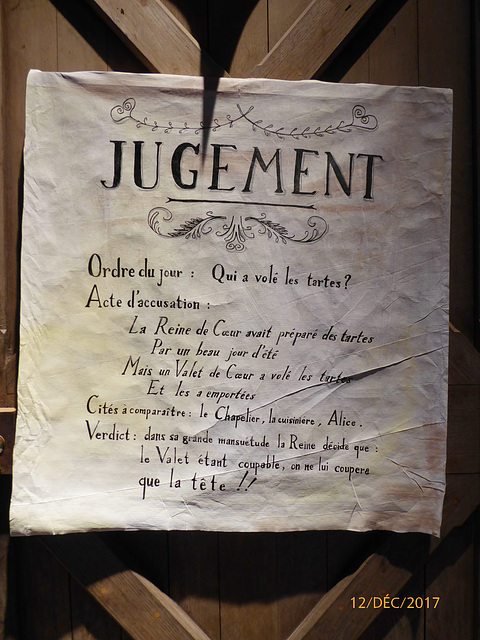 JUGEMENT
Ordre du jour : Qui a volé les tartes ?
Acte d'accusation :
La Reine de Cœur avait préparé des tartes
Par un beau jour d'été
Mais un Valet de Cœur a volé les tartes
Et les a emportées
Cités à comparaître : le Chapelier, la cuisinière, Alice.
Verdict : dans sa grande mansuétude la Reine décide que :
le Valet étant coupable, on ne lui coupera
que la tête !!
12/DÉC/2017